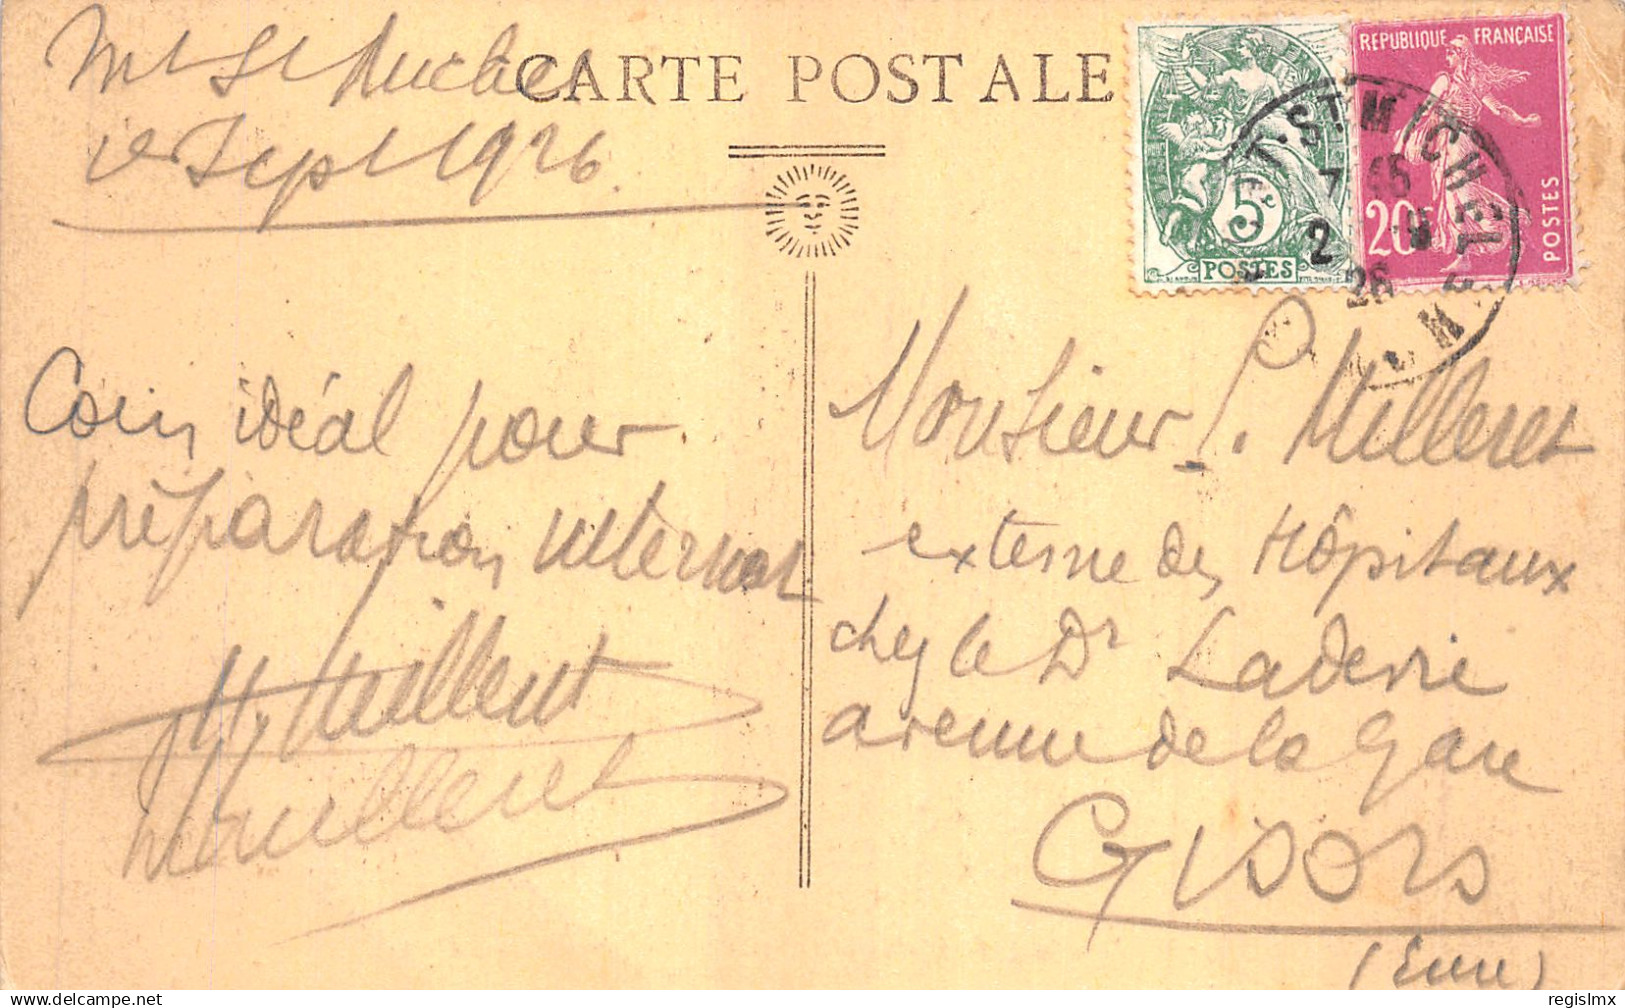 CARTE POSTALE
Mt St Michel
1er Sept 1926
Coin idéal pour
préparation internat
Milleret
REPUBLIQUE FRANÇAISE
20c
POSTES
5c
POSTES
T-ST MICHEL
7 45
2 -9
26
Monsieur P. Milleret
externe des Hôpitaux
chez le Dr Laderie
avenue de la Gare
GISORS
(Eure)
Delcampe.net
regislmx